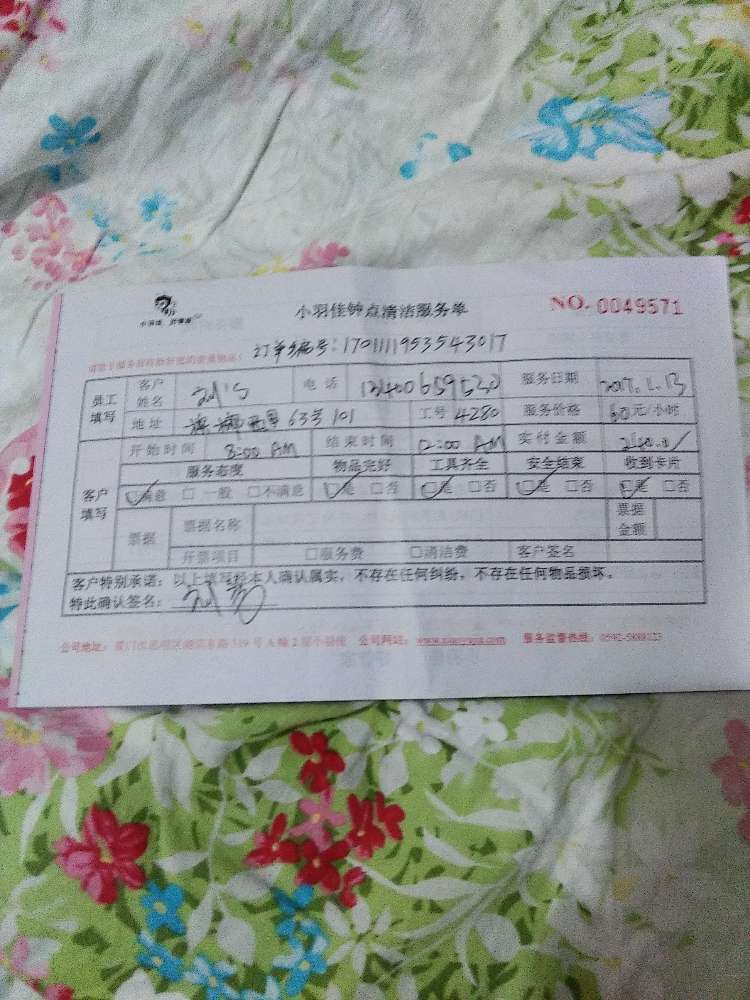 小羽佳钟点清洁服务单
NO. 0049571
订单编号:1701111953543017
员工填写 客户姓名 电话 服务日期 2017.1.13
地址 63号101 工号 4280 服务价格 60元/小时
开始时间 8:00 AM 结束时间 12:00 AM 实付金额
客户填写 服务态度 物品完好 工具齐全 安全结束 收到卡片
☑满意 □一般 □不满意 ☑是 □否 ☑是 □否 ☑是 □否 ☑是 □否
票据 票据名称 票据金额
开票项目 □服务费 □清洁费 客户签名
客户特别承诺:以上填写经本人确认属实,不存在任何纠纷,不存在任何物品损坏。
特此确认签名:
公司地址: 公司网站: 服务监督热线: